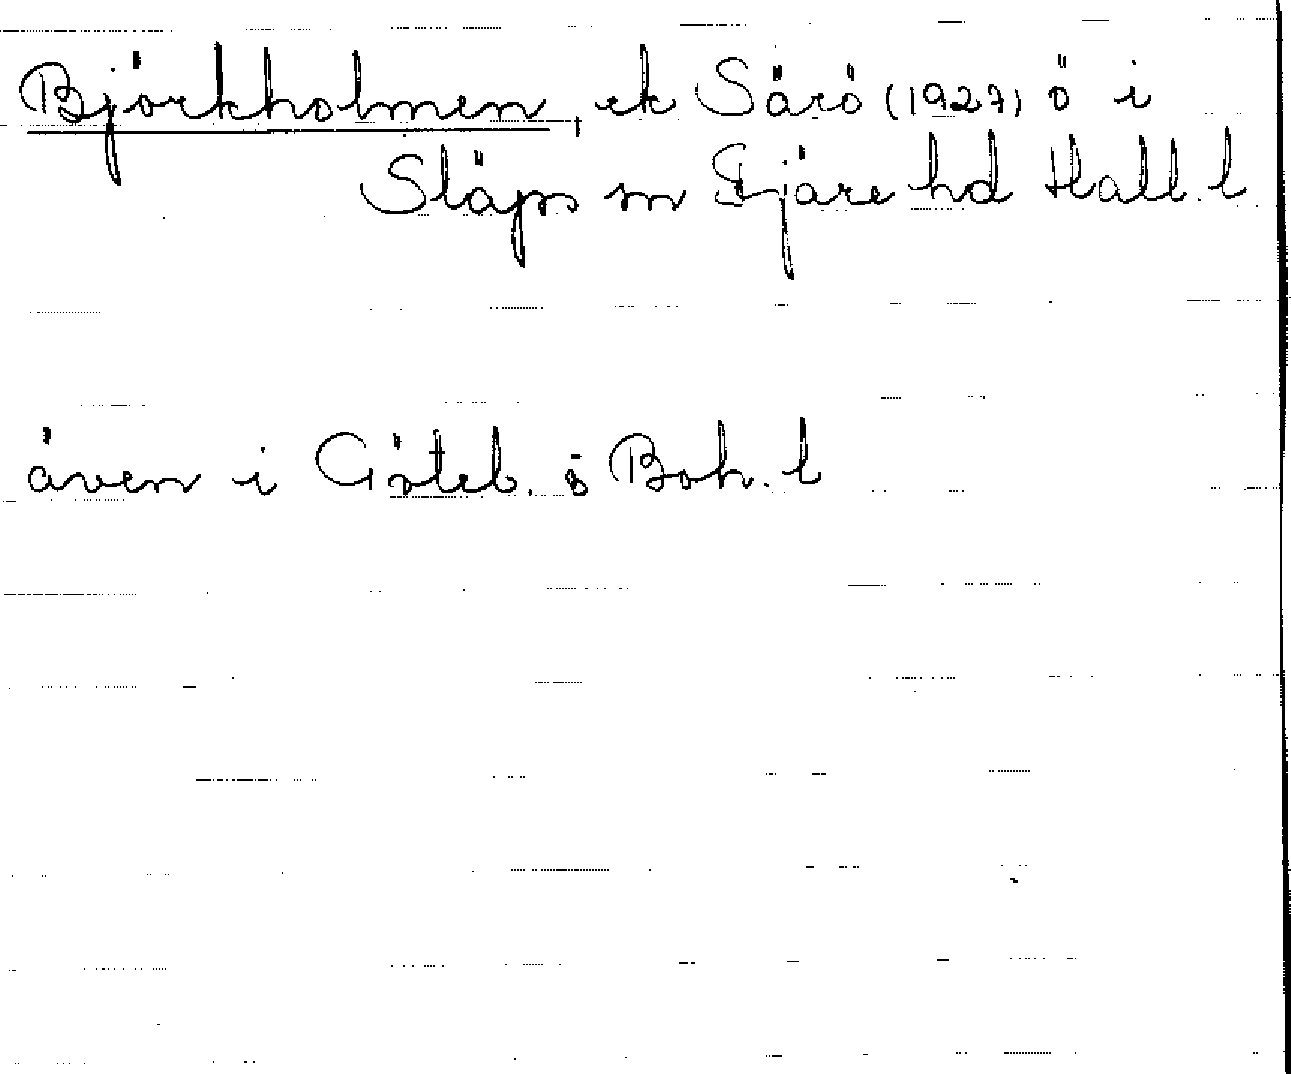 Björkholmen, ek Särö (1927) ö i
Släps sn Fjäre hd Hall. l
även i Göteb. o Boh. l